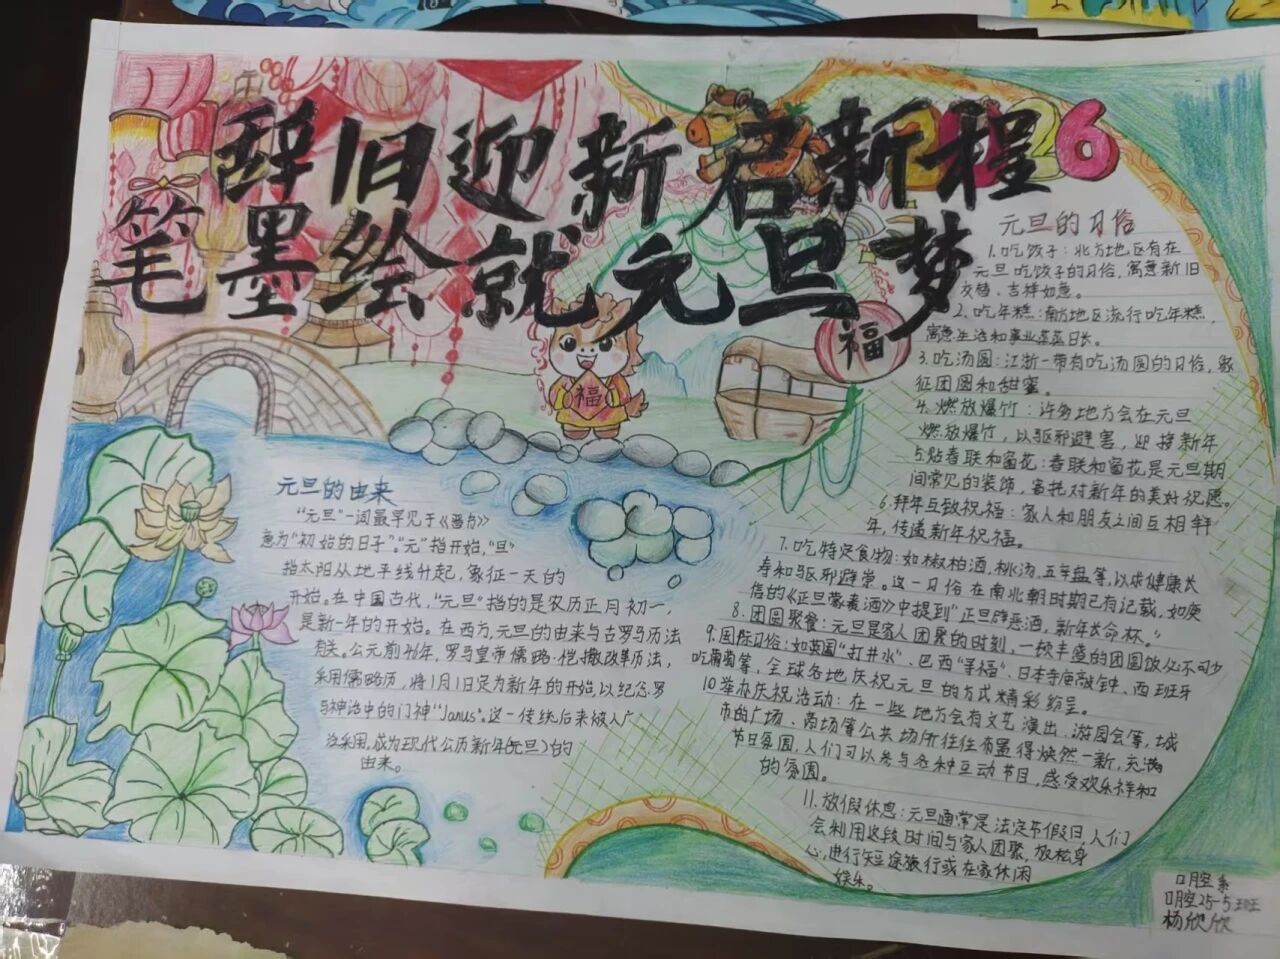 辞旧迎新启新程
2026
笔墨绘就元旦梦
福
福
元旦的由来
"元旦"一词最早见于《晋书》
意为"初始的日子"。"元"指开始,"旦"
指太阳从地平线升起,象征一天的
开始。在中国古代,"元旦"指的是农历正月初一,
是新一年的开始。在西方,元旦的由来与古罗马历法
有关。公元前46年,罗马皇帝儒略·恺撒改革历法,
采用儒略历,将1月1日定为新年的开始,以纪念罗
马神话中的门神"Janus"。这一传统后来被人广
泛采用,成为现代公历新年(元旦)的
由来。
元旦的习俗
1.吃饺子:北方地区有在
元旦吃饺子的习俗,寓意新旧
交替、吉祥如意。
2.吃年糕:南方地区流行吃年糕,
寓意生活和事业蒸蒸日长。
3.吃汤圆:江浙一带有吃汤圆的习俗,象
征团圆和甜蜜。
4.燃放爆竹:许多地方会在元旦
燃放爆竹,以驱邪避害,迎接新年
5贴春联和窗花:春联和窗花是元旦期
间常见的装饰,寄托对新年的美好祝愿。
6.拜年互致祝福:家人和朋友之间互相拜
年,传递新年祝福。
7.吃特定食物:如椒柏酒,桃汤,五辛盘等,以求健康长
寿和驱邪避祟。这一习俗在南北朝时期已有记载,如庾
信的《正旦蒙赉酒》中提到"正旦辟恶酒,新年长命杯。"
8.团圆聚餐:元旦是家人团聚的时刻,一顿丰盛的团圆饭必不可少
9.国际习俗:如英国"打井水"、巴西"寻福"、日本寺庙敲钟、西班牙
吃葡萄等,全球各地庆祝元旦的方式精彩纷呈。
10举办庆祝活动:在一些地方会有文艺演出、游园会等,城
市的广场、商场等公共场所往往布置得焕然一新,充满
节日氛围,人们可以参与各种互动节目,感受欢乐祥和
的氛围。
11.放假休息:元旦通常是法定节假日,人们
会利用这段时间与家人团聚,放松身
心,进行短途旅行或在家休闲
娱乐。
口腔系
口腔25-5班
杨欣欣